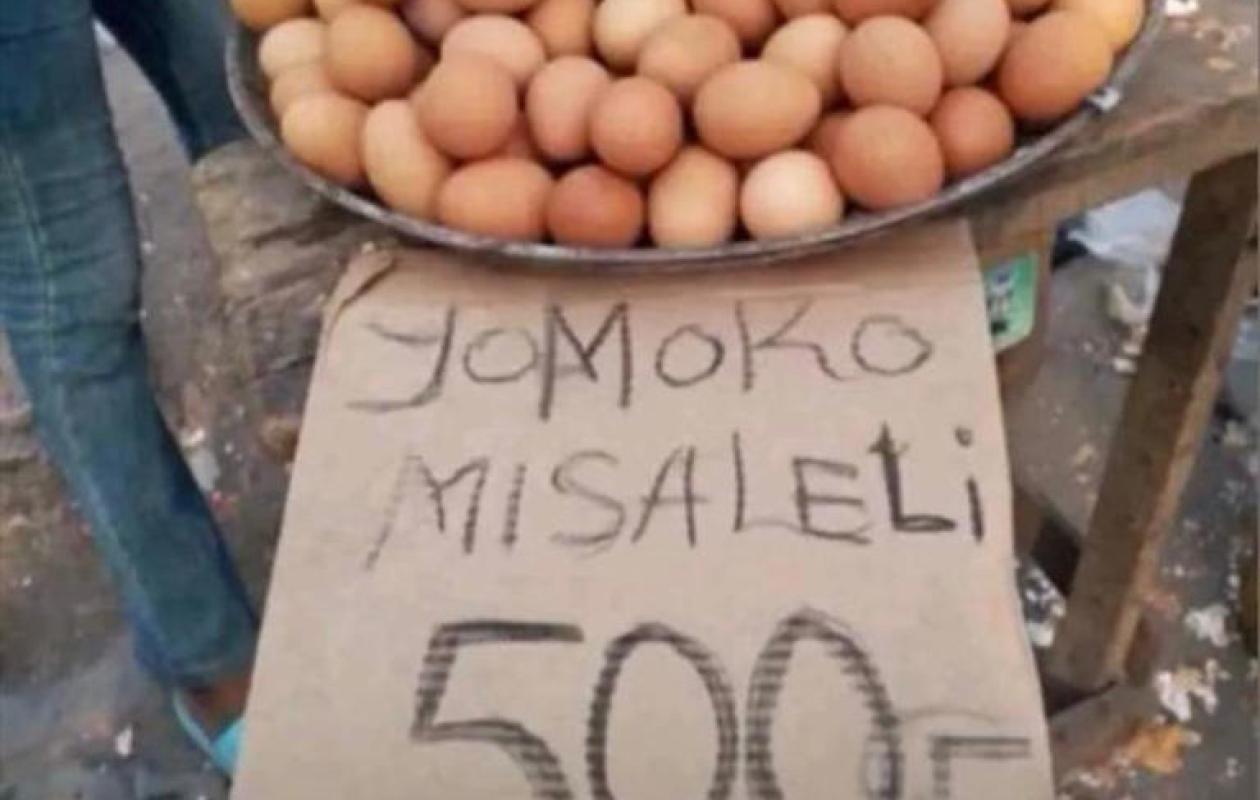 YOMOKO
MISALELi
500F